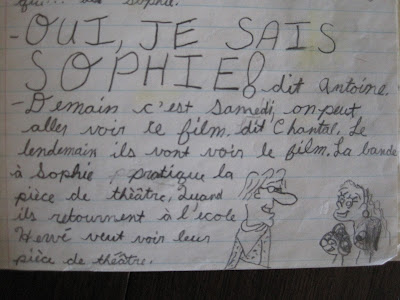 qui... des Sophie.
-OUI, JE SAIS
SOPHIE! dit Antoine.
-Demain c'est samedi, on peut
aller voir le film. dit Chantal. Le
lendemain ils vont voir le film. La bande
à Sophie pratique la
pièce de thèâtre, quand
ils retournent à l'ecole
Hervé veut voir leur
pièce de thèâtre.